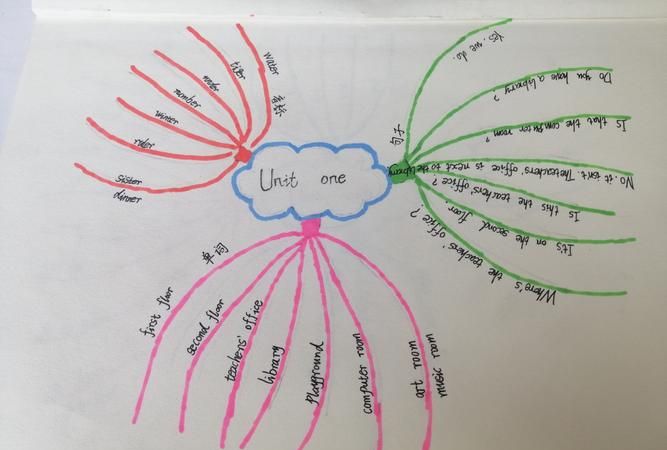 Unit one
音标
water
tiger
number
winter
ruler
sister
dinner
句子
Yes. we do.
Do you have a library?
Is that the computer room?
No. it isn't. The teachers' office is next to the library
Is this the teachers' office?
It's on the second floor.
Where's the teachers' office?
单词
first floor
second floor
teachers' office
library
playground
computer room
art room
music room